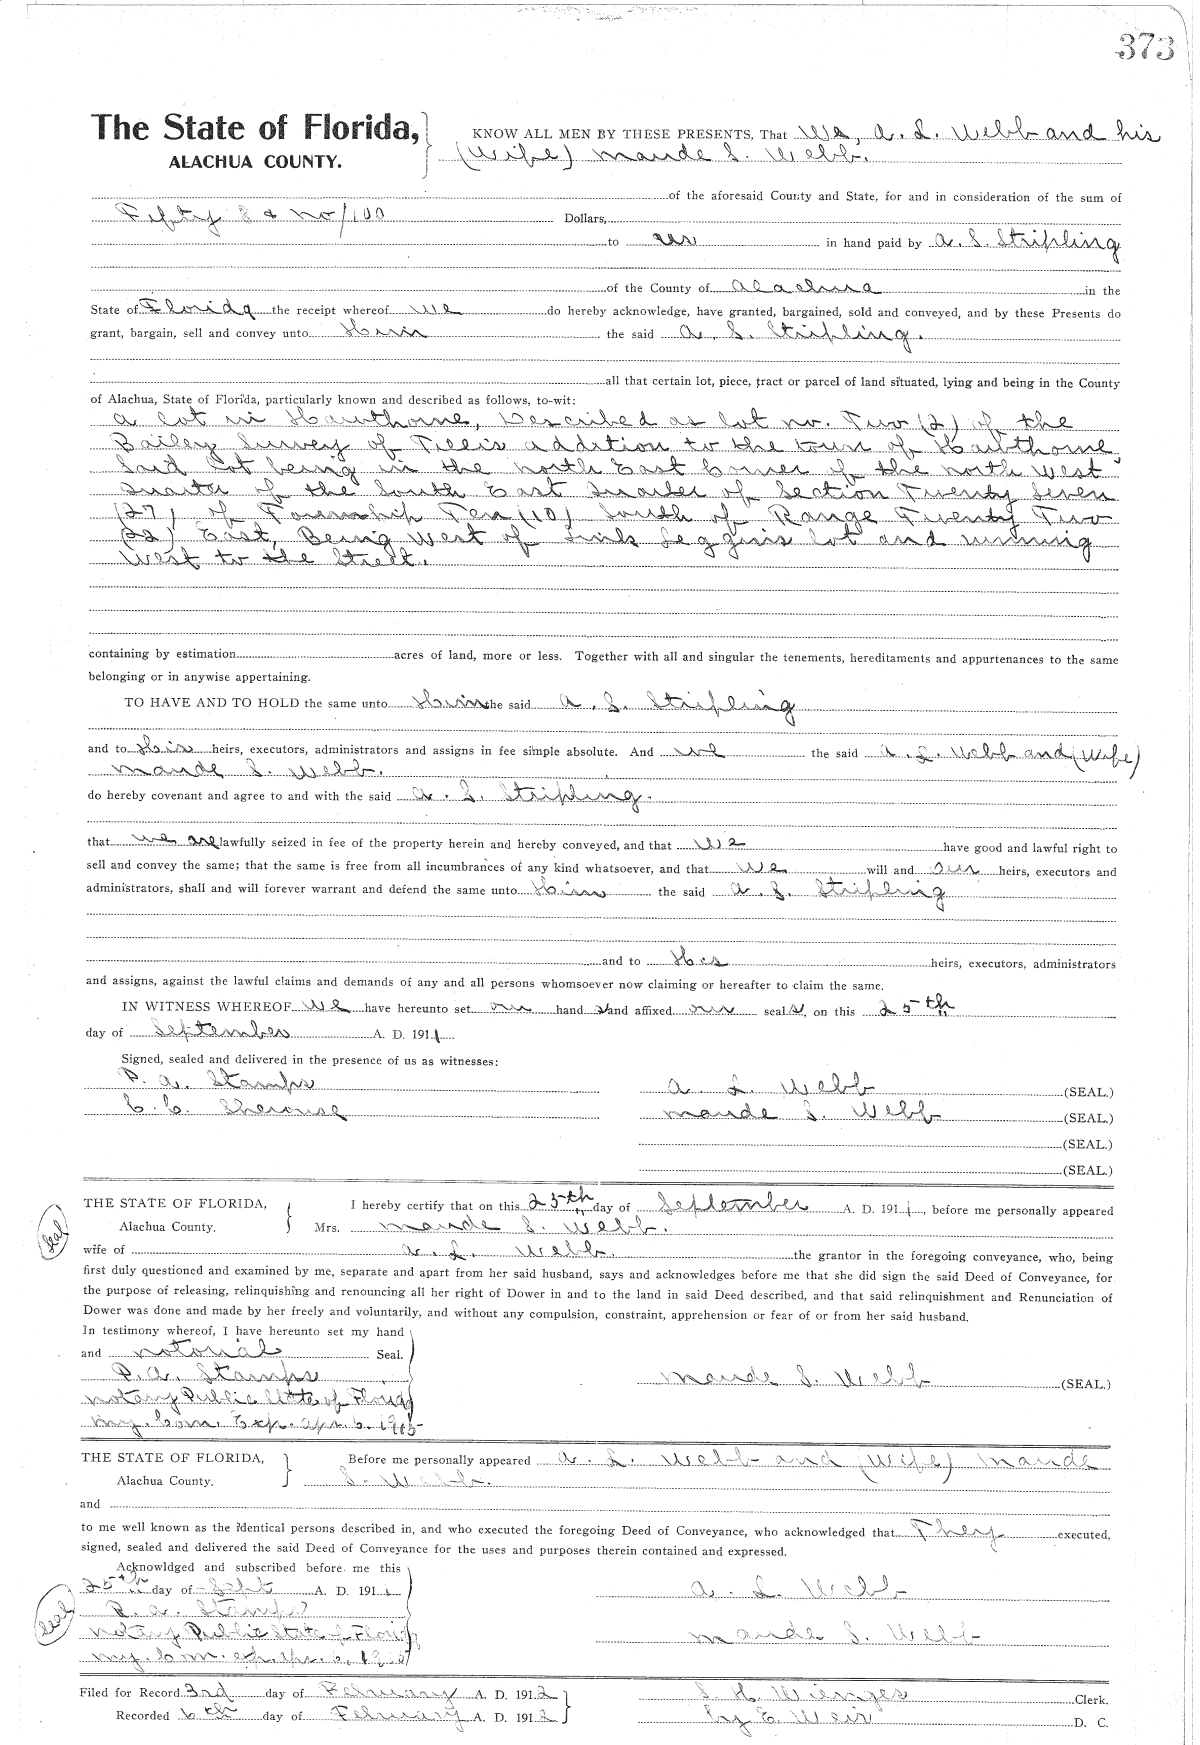 373
The State of Florida, KNOW ALL MEN BY THESE PRESENTS, That We, A. L. Webb and his
ALACHUA COUNTY. (Wife) Maude S. Webb.
of the aforesaid County and State, for and in consideration of the sum of
Fifty & no/100 Dollars,
to us in hand paid by A. S. Stripling
of the County of Alachua in the
State of Florida the receipt whereof we do hereby acknowledge, have granted, bargained, sold and conveyed, and by these Presents do
grant, bargain, sell and convey unto Him the said A. S. Stripling.
all that certain lot, piece, tract or parcel of land situated, lying and being in the County
of Alachua, State of Florida, particularly known and described as follows, to-wit:
A lot in Hawthorne, Described as lot no. Two (2) of the
Bailey Survey of Tillis addition to the town of Hawthorne,
Said Lot being in the North East Corner of the North West
Quarter of the South East Quarter of Section Twenty Seven
(27) of Township Ten (10) South of Range Twenty Two
(22) East, Being West of Leggins lot and running
West to the Street.
containing by estimation acres of land, more or less. Together with all and singular the tenements, hereditaments and appurtenances to the same
belonging or in anywise appertaining.
TO HAVE AND TO HOLD the same unto Him the said A. S. Stripling
and to His heirs, executors, administrators and assigns in fee simple absolute. And we the said A. L. Webb and (Wife)
Maude S. Webb.
do hereby covenant and agree to and with the said A. S. Stripling.
that we are lawfully seized in fee of the property herein and hereby conveyed, and that We have good and lawful right to
sell and convey the same; that the same is free from all incumbrances of any kind whatsoever, and that We will and our heirs, executors and
administrators, shall and will forever warrant and defend the same unto Him the said A. S. Stripling
and to His heirs, executors, administrators
and assigns, against the lawful claims and demands of any and all persons whomsoever now claiming or hereafter to claim the same.
IN WITNESS WHEREOF We have hereunto set our hand s and affixed our seal s, on this 25th
day of September A. D. 1911
Signed, sealed and delivered in the presence of us as witnesses:
P. A. Stamps A. L. Webb (SEAL.)
C. C. Sherouse Maude S. Webb (SEAL.)
(SEAL.)
(SEAL.)
THE STATE OF FLORIDA, I hereby certify that on this 25th day of September A. D. 1911, before me personally appeared
Seal Alachua County. Mrs. Maude S. Webb.
wife of A. L. Webb. the grantor in the foregoing conveyance, who, being
first duly questioned and examined by me, separate and apart from her said husband, says and acknowledges before me that she did sign the said Deed of Conveyance, for
the purpose of releasing, relinquishing and renouncing all her right of Dower in and to the land in said Deed described, and that said relinquishment and Renunciation of
Dower was done and made by her freely and voluntarily, and without any compulsion, constraint, apprehension or fear of or from her said husband.
In testimony whereof, I have hereunto set my hand
and notorial Seal.
P. A. Stamps Maude S. Webb (SEAL.)
Notary Public State of Florida
My. Com. Exp. Apr. 6. 1915
THE STATE OF FLORIDA, Before me personally appeared A. L. Webb and (Wife) Maude
Alachua County. S. Webb.
and
to me well known as the identical persons described in, and who executed the foregoing Deed of Conveyance, who acknowledged that They executed,
signed, sealed and delivered the said Deed of Conveyance for the uses and purposes therein contained and expressed.
Acknowldged and subscribed before me this
25th day of Sept A. D. 1911 A. L. Webb
Seal P. A. Stamps
Notary Public State of Florida Maude S. Webb
My. Com. exp. Apr. 6, 1915
Filed for Record 3rd day of February A. D. 1912 S. H. Wienges Clerk.
Recorded 6th day of February A. D. 1912 by E. Weir D. C.